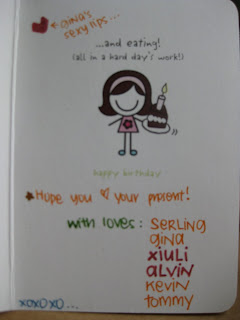 ← GINA'S
SEXY LIPS...
...and eating!
(all in a hard day's work!)
happy birthday
HOPE YOU YOUR PRESENT!
WITH LOVES: SERLING
GINA
XIULI
ALVIN
KEVIN
TOMMY
XOXOXO...